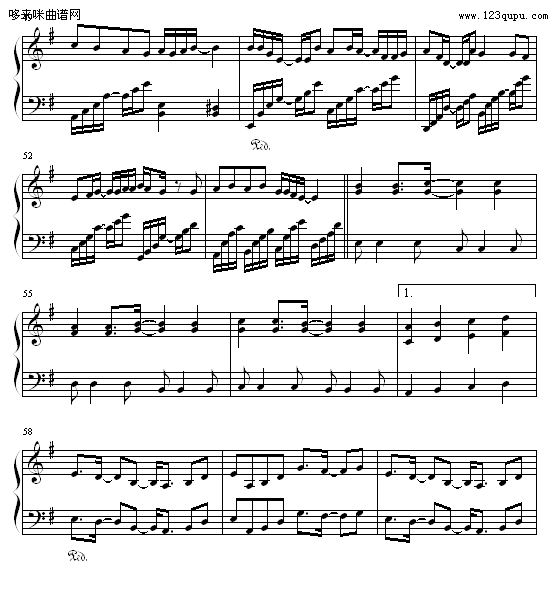 哆来咪曲谱网
www.123qupu.com
49
Ped.
52
55
1.
58
Ped.